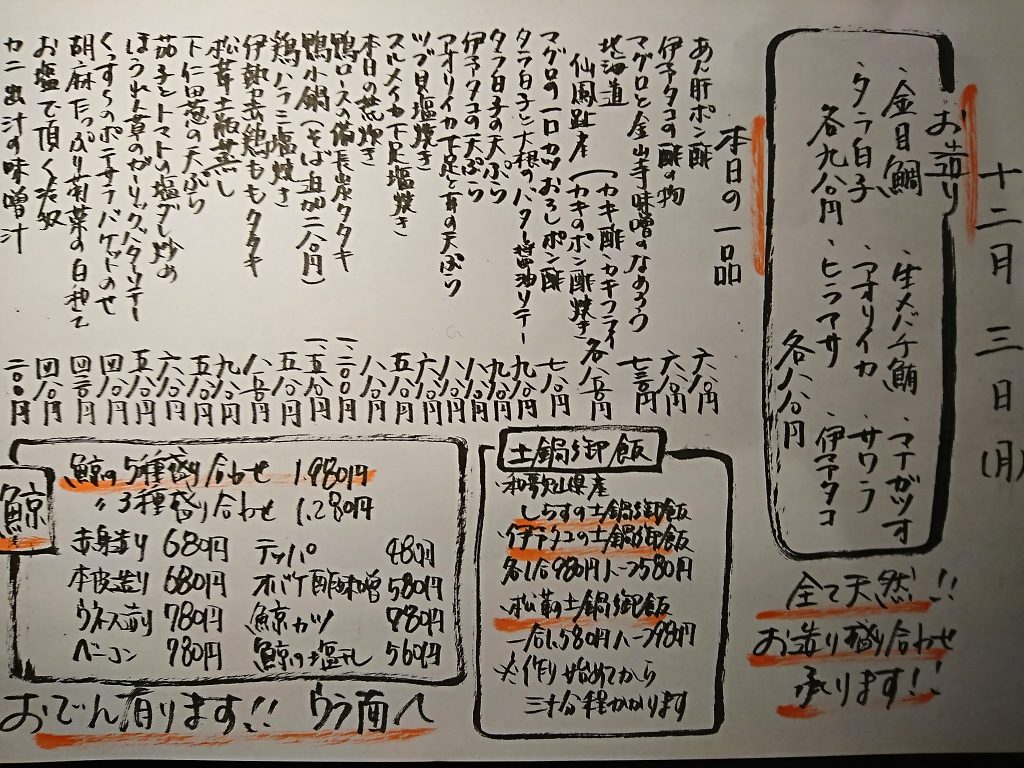 十二月三日(月)
お造り
・金目鯛
・タラ白子
各九八〇円
・生メバチ鮪
・アオリイカ
・ヒラマサ
・マナガツオ
・サワラ
・伊予ダコ
各八八〇円
全て天然!!
お造り盛り合わせ
承ります!!
本日の一品
あん肝ポン酢 六八〇円
伊予ダコの酢の物 六八〇円
マグロと金山寺味噌のなめろう 七三〇円
北海道
仙鳳趾産(カキ酢・カキフライ
(カキのポン酢焼き 各八三〇円
マグロの一口カツおろしポン酢 七八〇円
タラ白子と大根のバター醤油ソテー 九八〇円
タラ白子の天ぷら 九八〇円
伊予ダコの天ぷら 八八〇円
アオリイカ下足と芽の天ぷら 八八〇円
ツブ貝塩焼き 六八〇円
スルメイカ下足塩焼き 五八〇円
本日の荒炊き 八八〇円
鴨ロースの備長炭タタキ 一二〇〇円
鴨小鍋(そば追加二八〇円) 一五八〇円
鶏ハラミ塩焼き 五八〇円
伊勢赤鶏ももタタキ 八三〇円
松茸土瓶蒸し 九八〇円
下仁田葱の天ぷら 五八〇円
茄子とトマトの塩ダレ炒め 六八〇円
ほうれん草のガーリックバターソテー 五八〇円
くんすらのポテサラバケットのせ 四八〇円
胡麻たっぷり菊菜の白和え 四三〇円
お塩で頂く冷奴 四八〇円
カニ出汁の味噌汁 二〇〇円
土鍋御飯
・和歌山県産
しらすの土鍋御飯
・伊予ダコの土鍋御飯
各1合980円ハーフ580円
・松茸の土鍋御飯
一合1,580円ハーフ980円
※作り始めてから
三十分程かかります
鯨
鯨の5種盛り合わせ 1,980円
〃3種盛り合わせ 1,280円
赤身造り 680円 テッパ 480円
本皮造り 680円 オバケ酢味噌 580円
ウネス造り 780円 鯨カツ 980円
ベーコン 980円 鯨の塩干し 560円
おでん有ります!! ウラ面へ